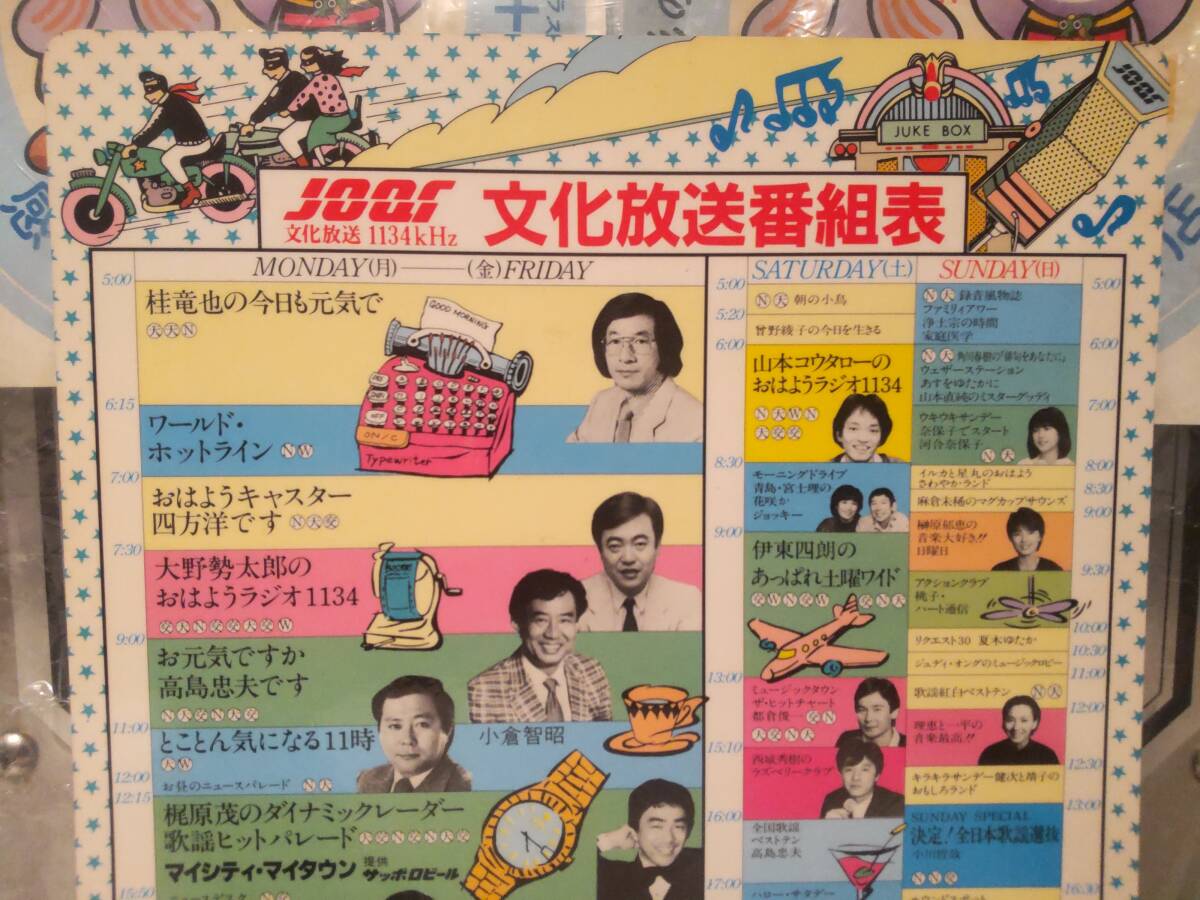 JUKE BOX
JOQR
JOQR
文化放送 1134kHz
文化放送番組表
MONDAY(月)
(金)FRIDAY
5:00
桂竜也の今日も元気で
天天N
GOOD MORNING
ON/C
Typewriter
6:15
ワールド・
ホットライン NW
7:00
おはようキャスター
四方洋です N天交
7:30
大野勢太郎の
おはようラジオ1134
交天N交交天交W
9:00
お元気ですか
高島忠夫です
N天交N天交
11:00
とことん気になる11時
天W
小倉智昭
12:00
お昼のニュースパレード N天
12:15
梶原茂のダイナミックレーダー
歌謡ヒットパレード 天交N交N天交
マイシティ・マイタウン 提供 サッポロビール
15:50
SATURDAY(土)
5:00
N天 朝の小鳥
5:20
曾野綾子の今日を生きる
6:00
山本コウタローの
おはようラジオ1134
N天WN
天交交
8:30
モーニングドライブ
青島・宮士理の
花咲か
ジョッキー
9:00
伊東四朗の
あっぱれ土曜ワイド
交WN交W 交N天
13:00
ミュージックタウン
ザ・ヒットチャート
都倉俊一 交N
天交N天
15:10
西城秀樹の
ラズベリークラブ
16:00
全国歌謡
ベストテン
高島忠夫
17:00
ハロー・サタデー
SUNDAY(日)
5:00
N天 録音風物誌
ファミリィアワー
浄土宗の時間
家庭医学
6:00
N天 角川春樹の「俳句をあなたに」
ウェザーステーション
あすをゆたかに
山本直純のミスターグッディ
7:00
ウキウキサンデー
奈保子でスタート
河合奈保子
N天
8:00
イルカと星丸のおはよう
さわやかランド
8:30
麻倉未稀のマグカップサウンズ
9:00
榊原郁恵の
音楽大好き!!
日曜日
9:30
アクションクラブ
桃子・
ハート通信
10:00
リクエスト30 夏木ゆたか
10:30
ジュディ・オングのミュージックロビー
11:00
歌謡紅白ベストテン N天
12:00
理恵と一平の
音楽最高!!
12:30
キラキラサンデー健次と靖子の
おもしろランド
13:00
SUNDAY SPECIAL
決定!全日本歌謡選抜
小川哲哉
NN交
16:30